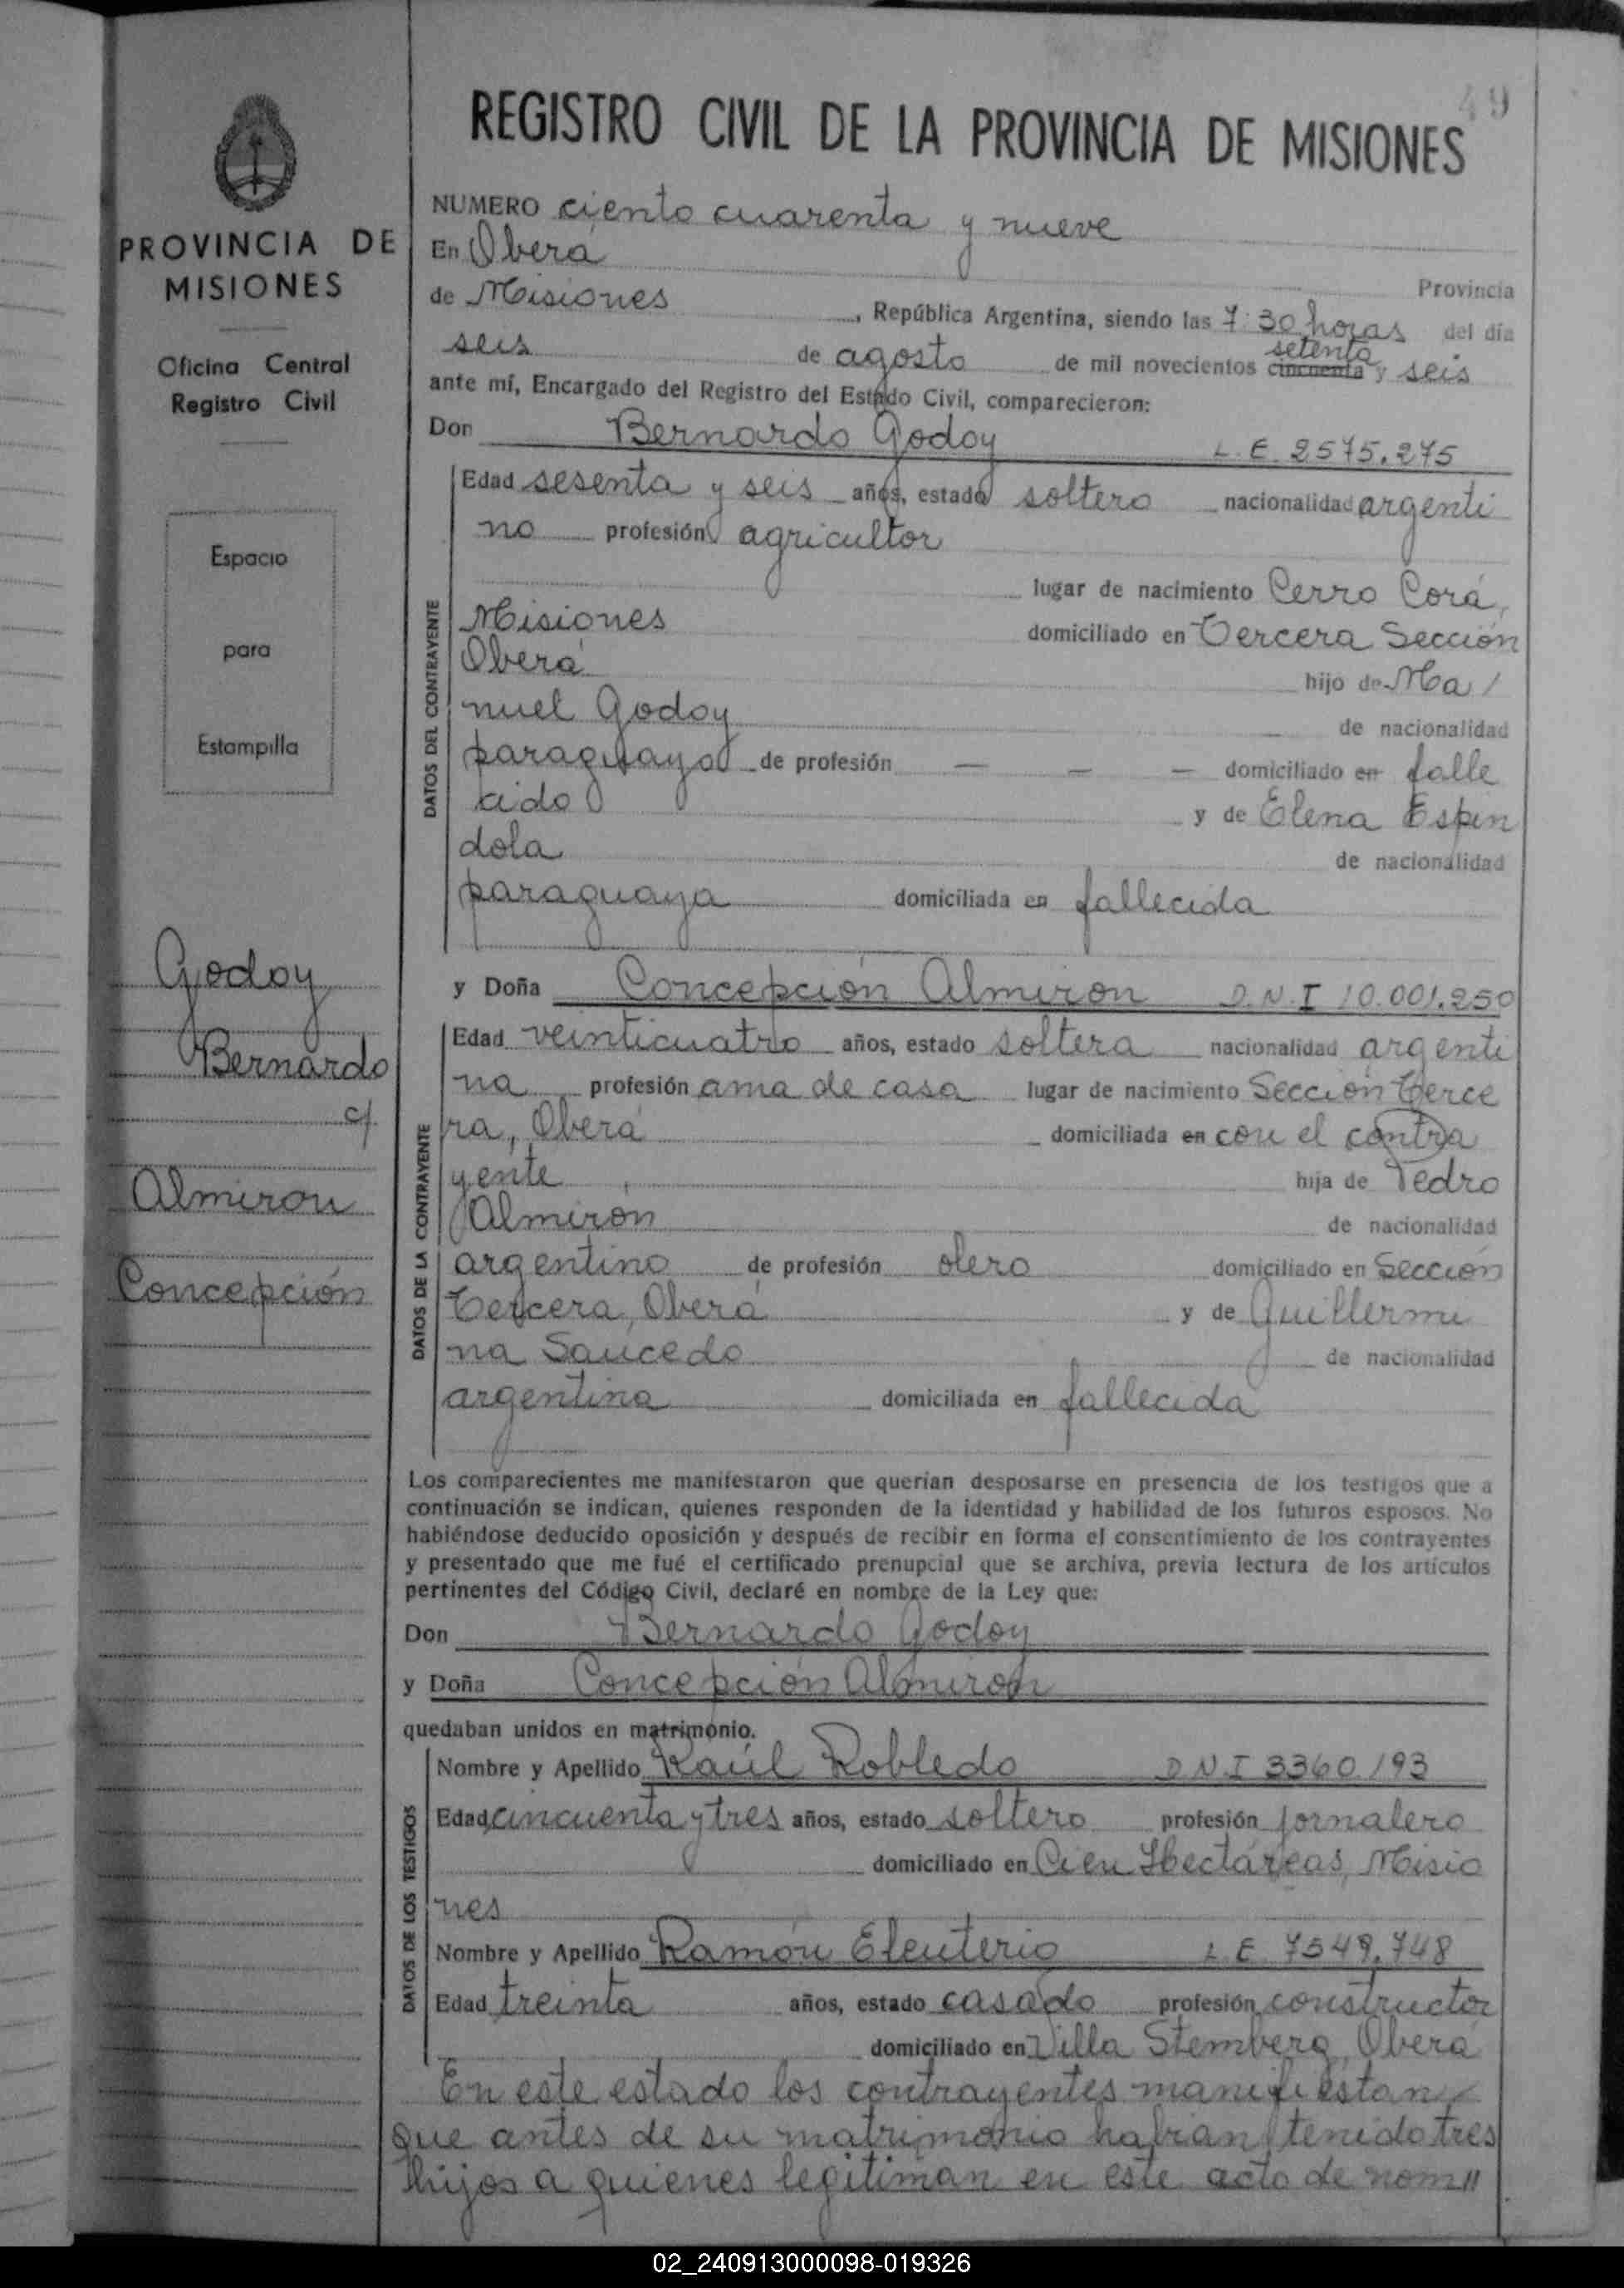 49
REGISTRO CIVIL DE LA PROVINCIA DE MISIONES
PROVINCIA DE
MISIONES
Oficina Central
Registro Civil
Espacio
para
Estampilla
Godoy
Bernardo
c/.
Almiron
Concepción
NUMERO ciento cuarenta y nueve
En Oberá
Provincia
de Misiones, República Argentina, siendo las 7:30 horas del día
seis de agosto de mil novecientos cincuenta setenta y seis
ante mí, Encargado del Registro del Estado Civil, comparecieron:
Don Bernardo Godoy L.E. 2575.275
DATOS DEL CONTRAYENTE
Edad sesenta y seis años, estado soltero nacionalidad argenti
no profesión agricultor
lugar de nacimiento Cerro Corá,
Misiones domiciliado en Tercera Sección
Oberá hijo de Ma/
nuel Godoy de nacionalidad
paraguayo de profesión — — — domiciliado en falle
cido y de Elena Espin
dola de nacionalidad
paraguaya domiciliada en fallecida
y Doña Concepción Almiron D.N.I 10.001.250
DATOS DE LA CONTRAYENTE
Edad veinticuatro años, estado soltera nacionalidad argenti
na profesión ama de casa lugar de nacimiento Sección Terce
ra, Oberá domiciliada en con el contra
yente hija de Pedro
Almirón de nacionalidad
argentino de profesión olero domiciliado en Sección
Tercera, Oberá y de Guillermi
na Saucedo de nacionalidad
argentina domiciliada en fallecida
Los comparecientes me manifestaron que querían desposarse en presencia de los testigos que a
continuación se indican, quienes responden de la identidad y habilidad de los futuros esposos. No
habiéndose deducido oposición y después de recibir en forma el consentimiento de los contrayentes
y presentado que me fué el certificado prenupcial que se archiva, previa lectura de los artículos
pertinentes del Código Civil, declaré en nombre de la Ley que:
Don Bernardo Godoy
y Doña Concepción Almirón
quedaban unidos en matrimonio.
DATOS DE LOS TESTIGOS
Nombre y Apellido Raúl Robledo D.N.I 3360.193
Edad cincuenta y tres años, estado soltero profesión jornalero
domiciliado en Cien Hectáreas, Misio
nes
Nombre y Apellido Ramón Eleuterio L.E. 7549.748
Edad treinta años, estado casado profesión constructor
domiciliado en Villa Stemberg, Oberá
En este estado los contrayentes manifiestan
que antes de su matrimonio habian tenido tres
hijos a quienes legitiman en este acto de nom//
02_240913000098-019326